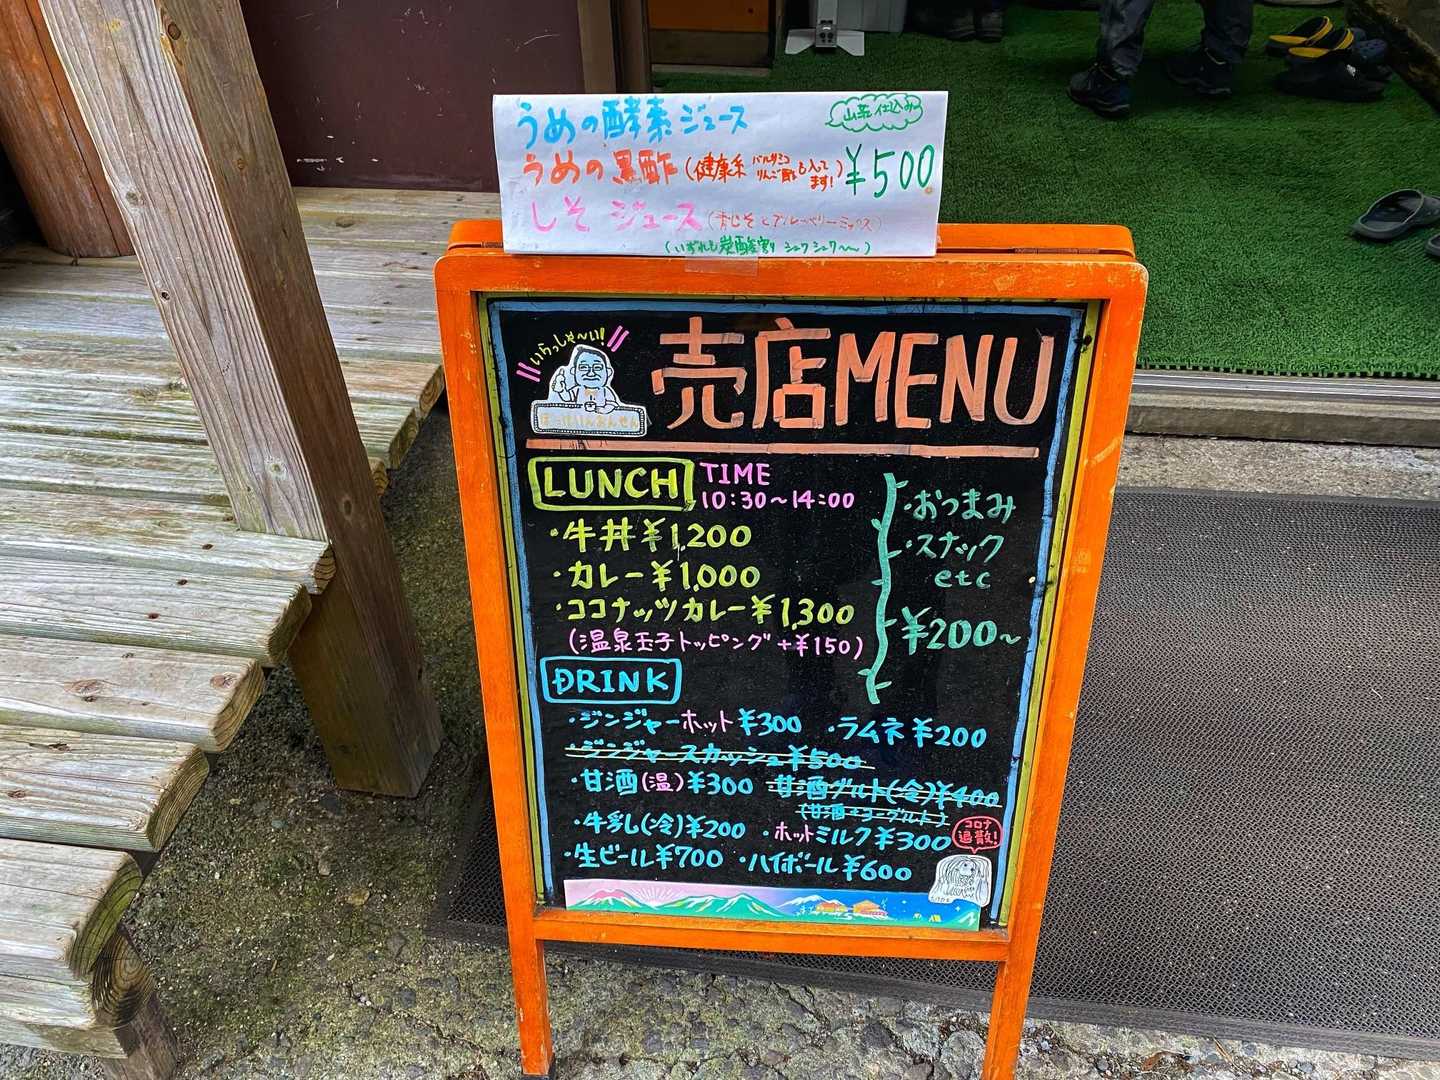 うめの酵素ジュース
山荘仕込み
うめの黒酢(健康系 バルサミコ りんご酢も入ってます!)
¥500
しそ ジュース(青じそとブルーベリーミックス)
(いずれも炭酸割り シュワシュワ〜〜)
いらっしゃ〜い!
売店MENU
LUNCH TIME
10:30~14:00
・牛丼¥1,200
・カレー¥1,000
・ココナッツカレー¥1,300
(温泉玉子トッピング+¥150)
・おつまみ
・スナック
etc
¥200~
DRINK
・ジンジャーホット¥300 ・ラムネ¥200
・ジンジャースカッシュ¥500
・甘酒(温)¥300 甘酒グルト(冷)¥400
(甘酒+ヨーグルト)
・牛乳(冷)¥200 ・ホットミルク¥300
・生ビール¥700 ・ハイボール¥600
コロナ
退散!